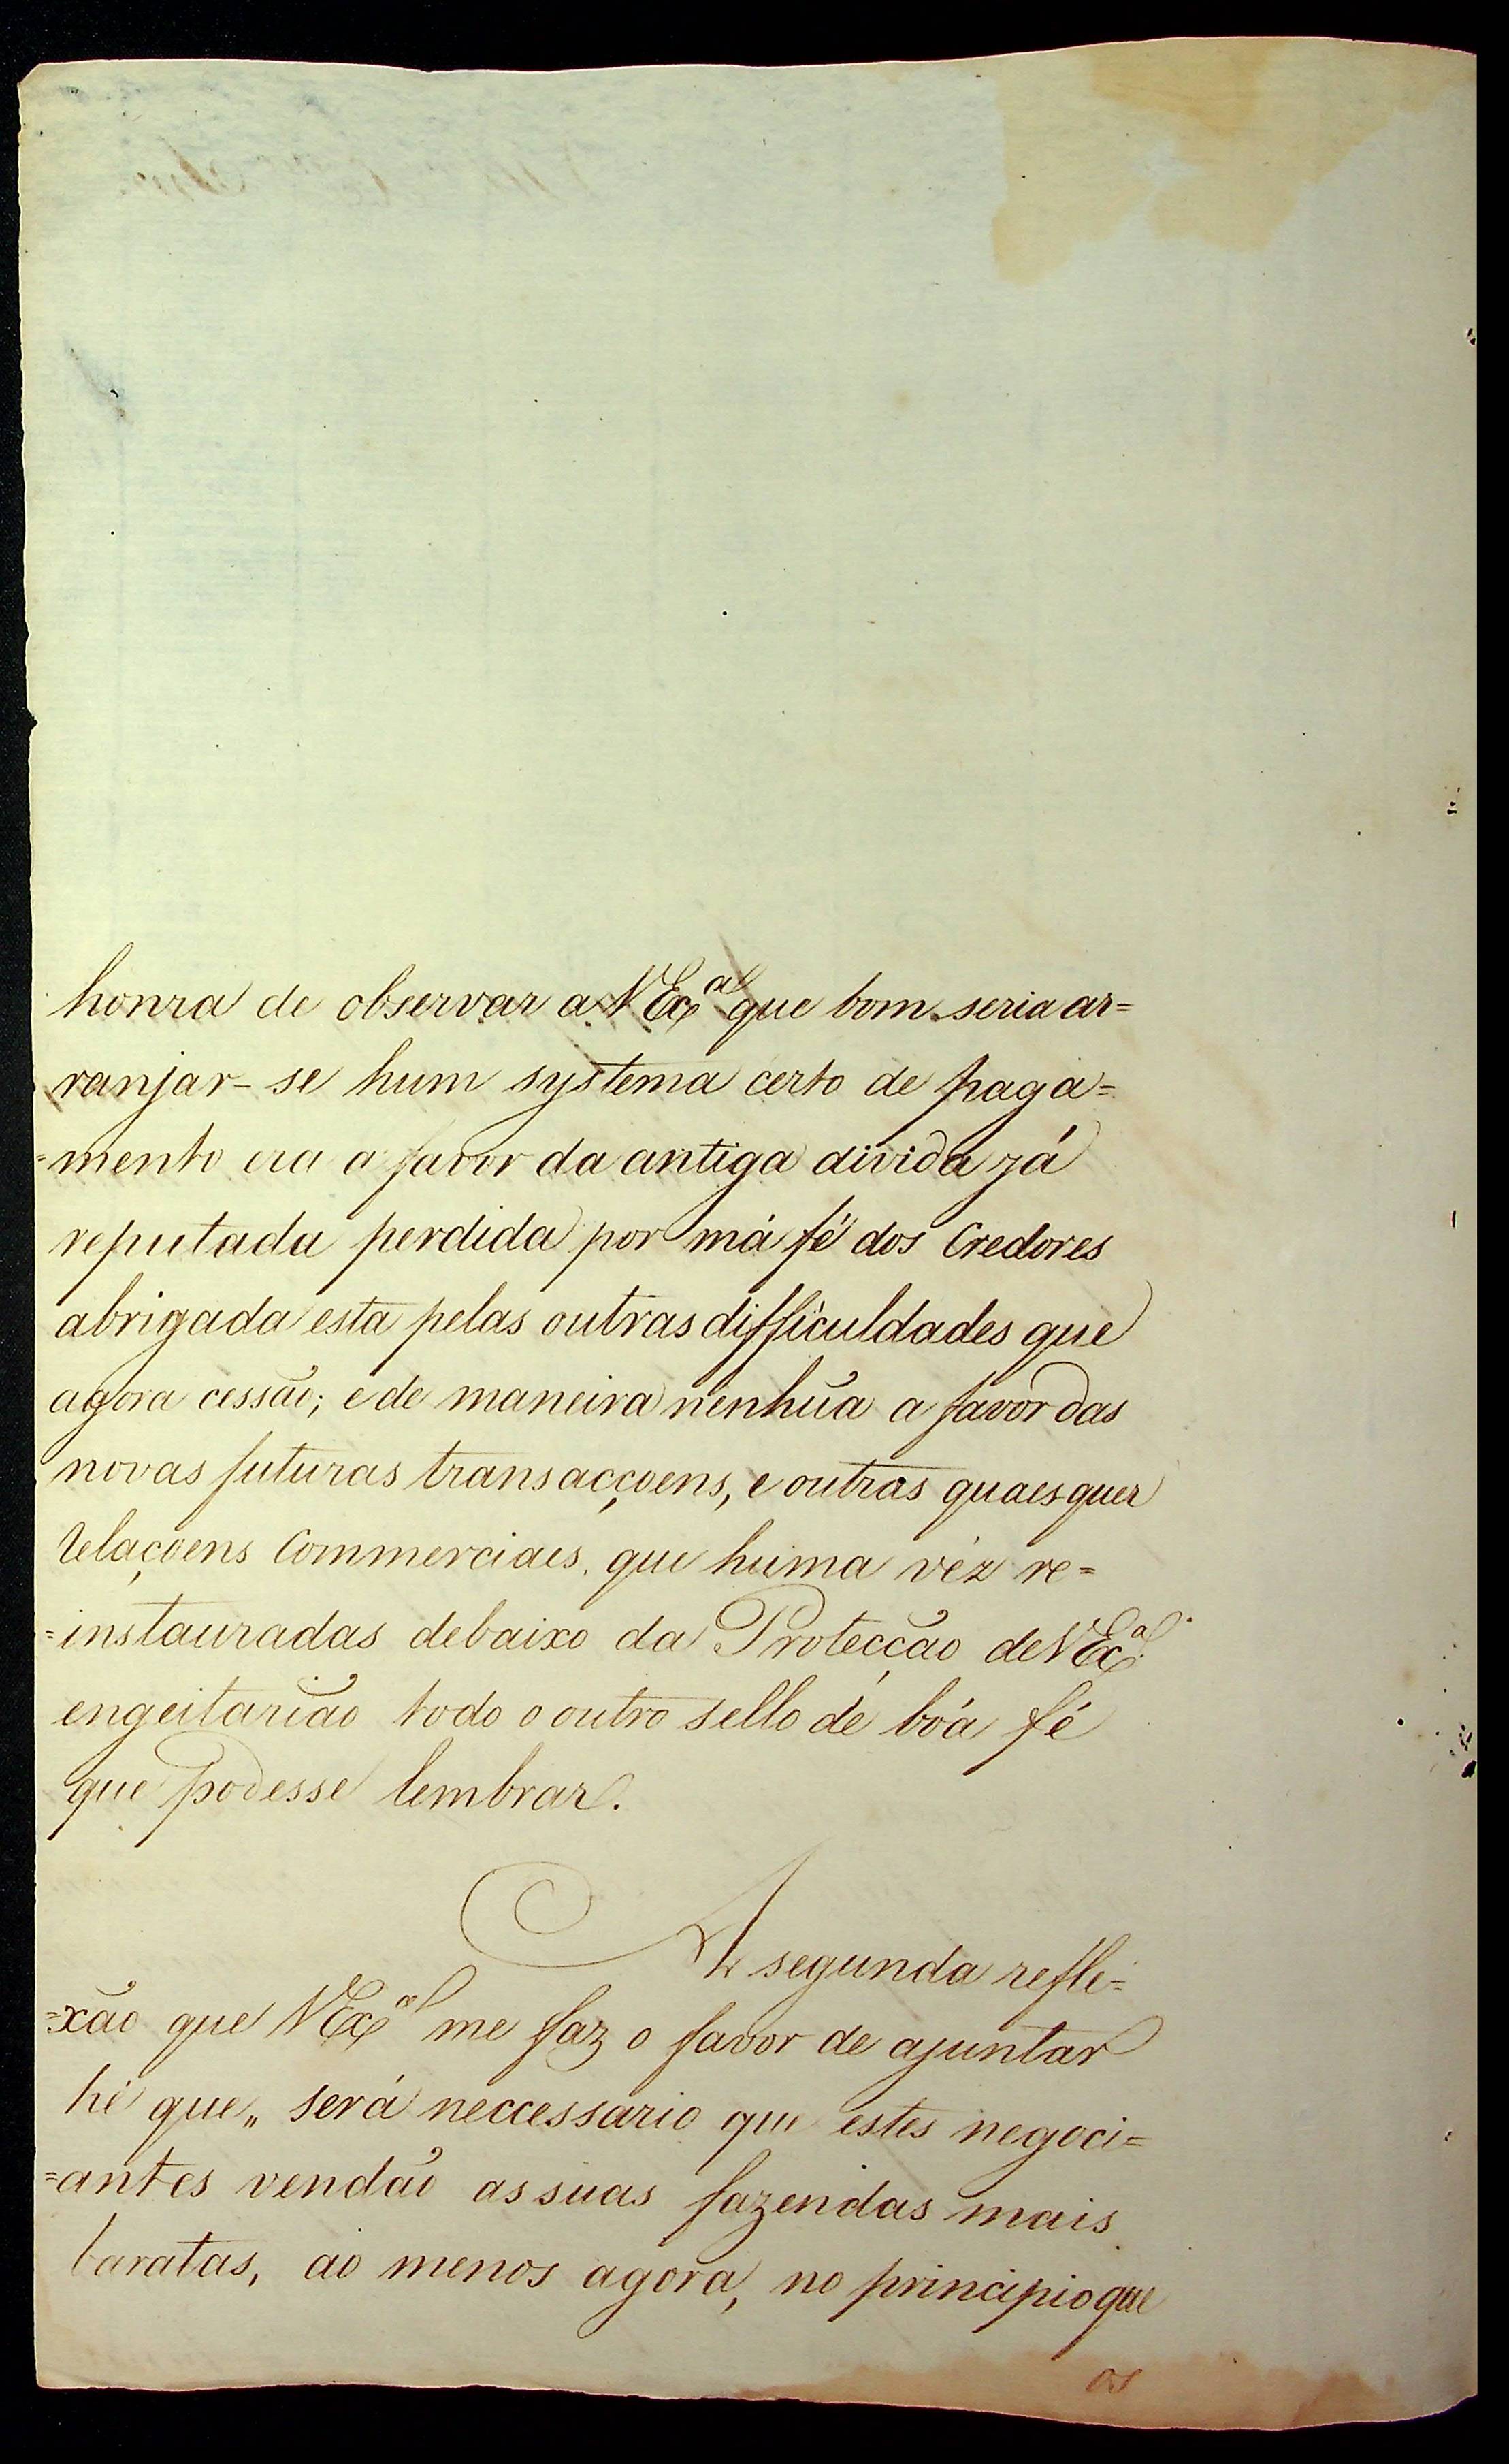 honra de observar a V Ex.ª que bom seria ar=
ranjar-se hum systema certo de paga=
=mento era a favor da antiga divida já
reputada perdida por má fé dos Credores
abrigada esta pelas outras difficuldades que
agora cessão; e de maneira nenhũa a favor das
novas futuras transacçoens, e outras quaesquer
relaçoens Commerciais, que huma véz re=
=instauradas debaixo da Protecção de V Ex.ª
engeitarião todo o outro sello de bóa fé
que podesse lembrar.
A segunda refle=
=xão que V Ex.ª me faz o favor de ajuntar
hé que „ será neccessario que estes negoci=
=antes vendão as suas fazendas mais
baratas, ao menos agora, no principio que
os